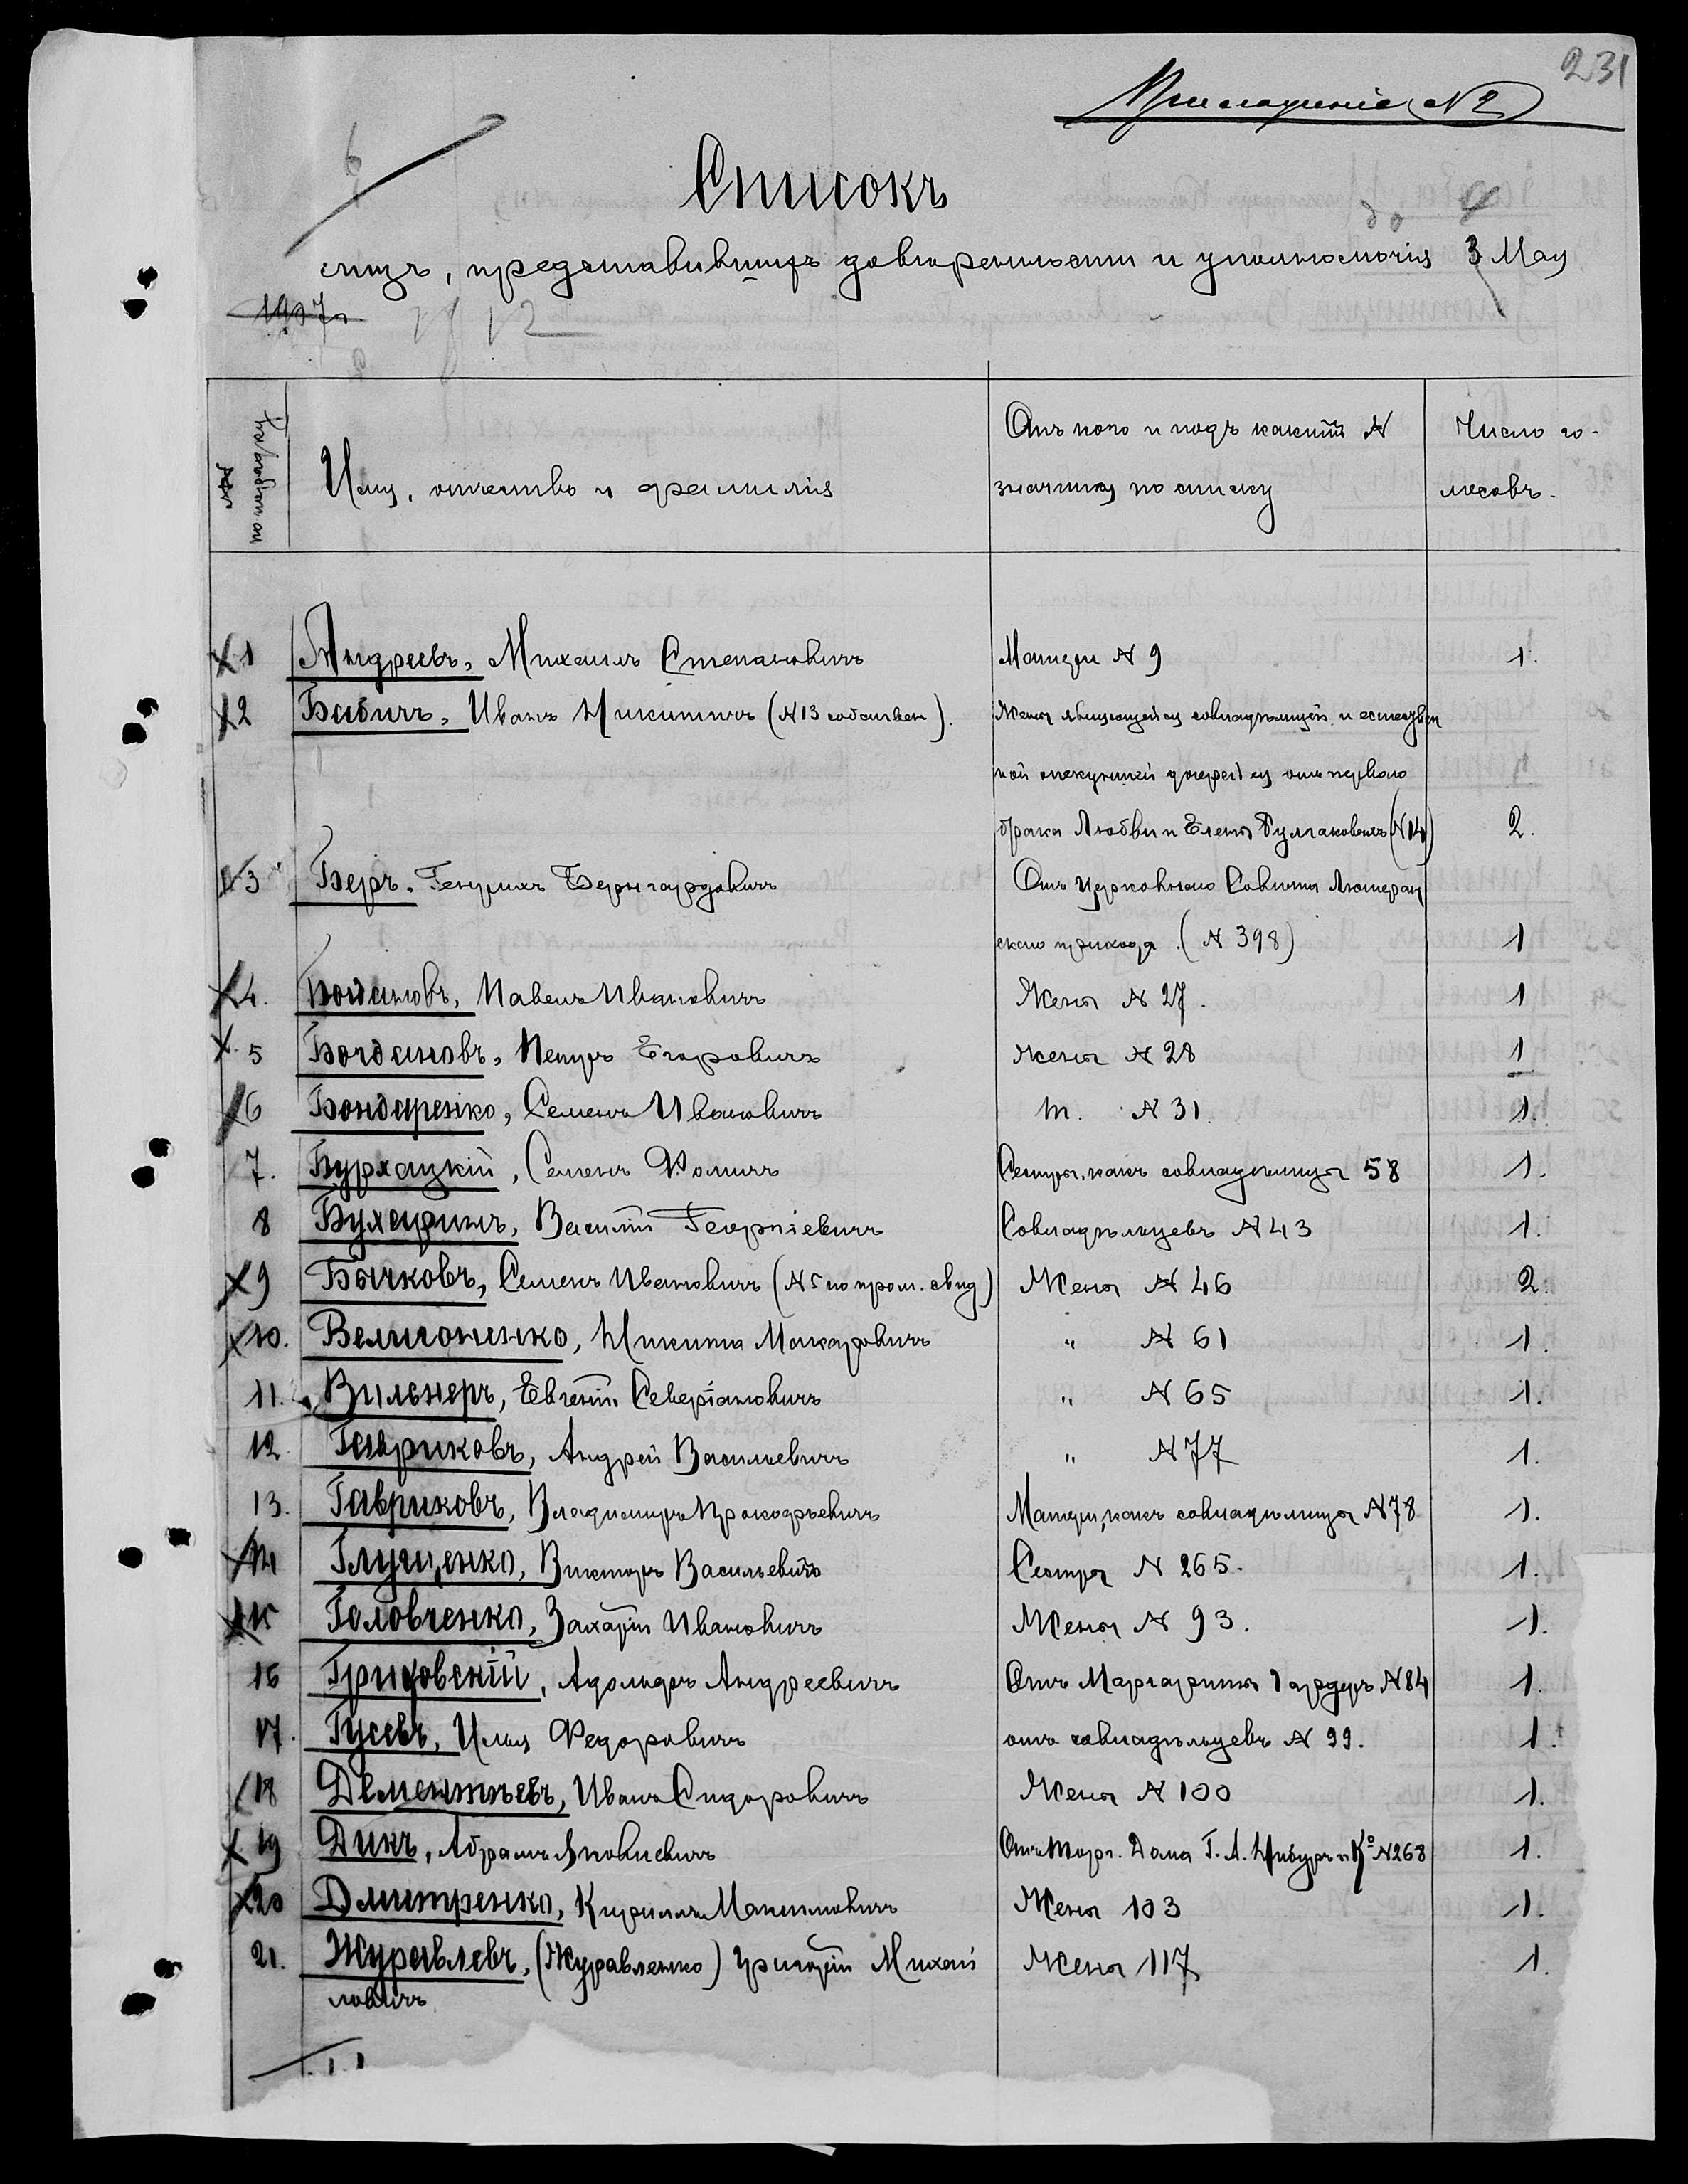 231
Приложеніе N 2
6
Списокъ
до
лицъ, представившихъ довѣренности и уполномочія 3 Мая
1907г.
12
По порядку
Имя, отчество и фамилія
Отъ кого и подъ какимъ N
значится по списку
Число го-
лосовъ.
1 Андреевъ, Михаилъ Степановичъ Матери N 9 1.
2 Бабичъ, Иванъ Никитичъ (N 13 собствен). Жены являющейся совладѣлицей и естествен
ной опекуншей дочерей ея отъ перваго
брака Любви и Елены Булгаковыхъ (N 14) 2.
3 Беръ, Генрихъ Бернгардовичъ Отъ Церковнаго Совѣта Лютеран
скаго прихода (N 398) 1
4. Богдановъ, Павелъ Ивановичъ Жены N 27. 1
5 Богдановъ, Петръ Егоровичъ Жены N 28 1
6 Бондаренко, Семенъ Ивановичъ N 31. 1.
7. Бурхацкій, Семенъ Фомичъ Сестры, какъ совладѣлицы 58 1.
8 Бухаринъ, Василій Георгіевичъ Совладѣльцевъ N 43 1.
9 Бычковъ, Семенъ Ивановичъ (N 5 по пром. свид) Жены N 46 2.
10. Велигоненко, Никита Макаровичъ " N 61 1.
11. Вильнеръ, Евгеній Северіановичъ " N 65 1.
12 Гавриковъ, Андрей Васильевичъ " N 77 1.
13. Гавриковъ, Владимиръ Прокофьевичъ Матери, какъ совладѣлицы N 78 1.
14 Глущенко, Викторъ Васильевичъ Сестры N 265. 1.
15 Головченко, Захарій Ивановичъ Жены N 93. 1.
16 Гриховскій, Адольфъ Андреевичъ Отъ Маргариты Гардеръ N 84 1.
17. Гусевъ, Илья Федоровичъ отъ совладѣльцевъ N 99. 1.
18 Дементьевъ, Иванъ Сидоровичъ Жены N 100 1.
19 Дикъ, Абрамъ Яковлевичъ Отъ Торг. Дома Г. А. Нибуръ и Ко N 268 1.
20 Дмитренко, Кириллъ Максимовичъ Жены 103 1.
21. Журавлевъ, (Журавленко) Григорій Михай Жены 117 1.
ловичъ